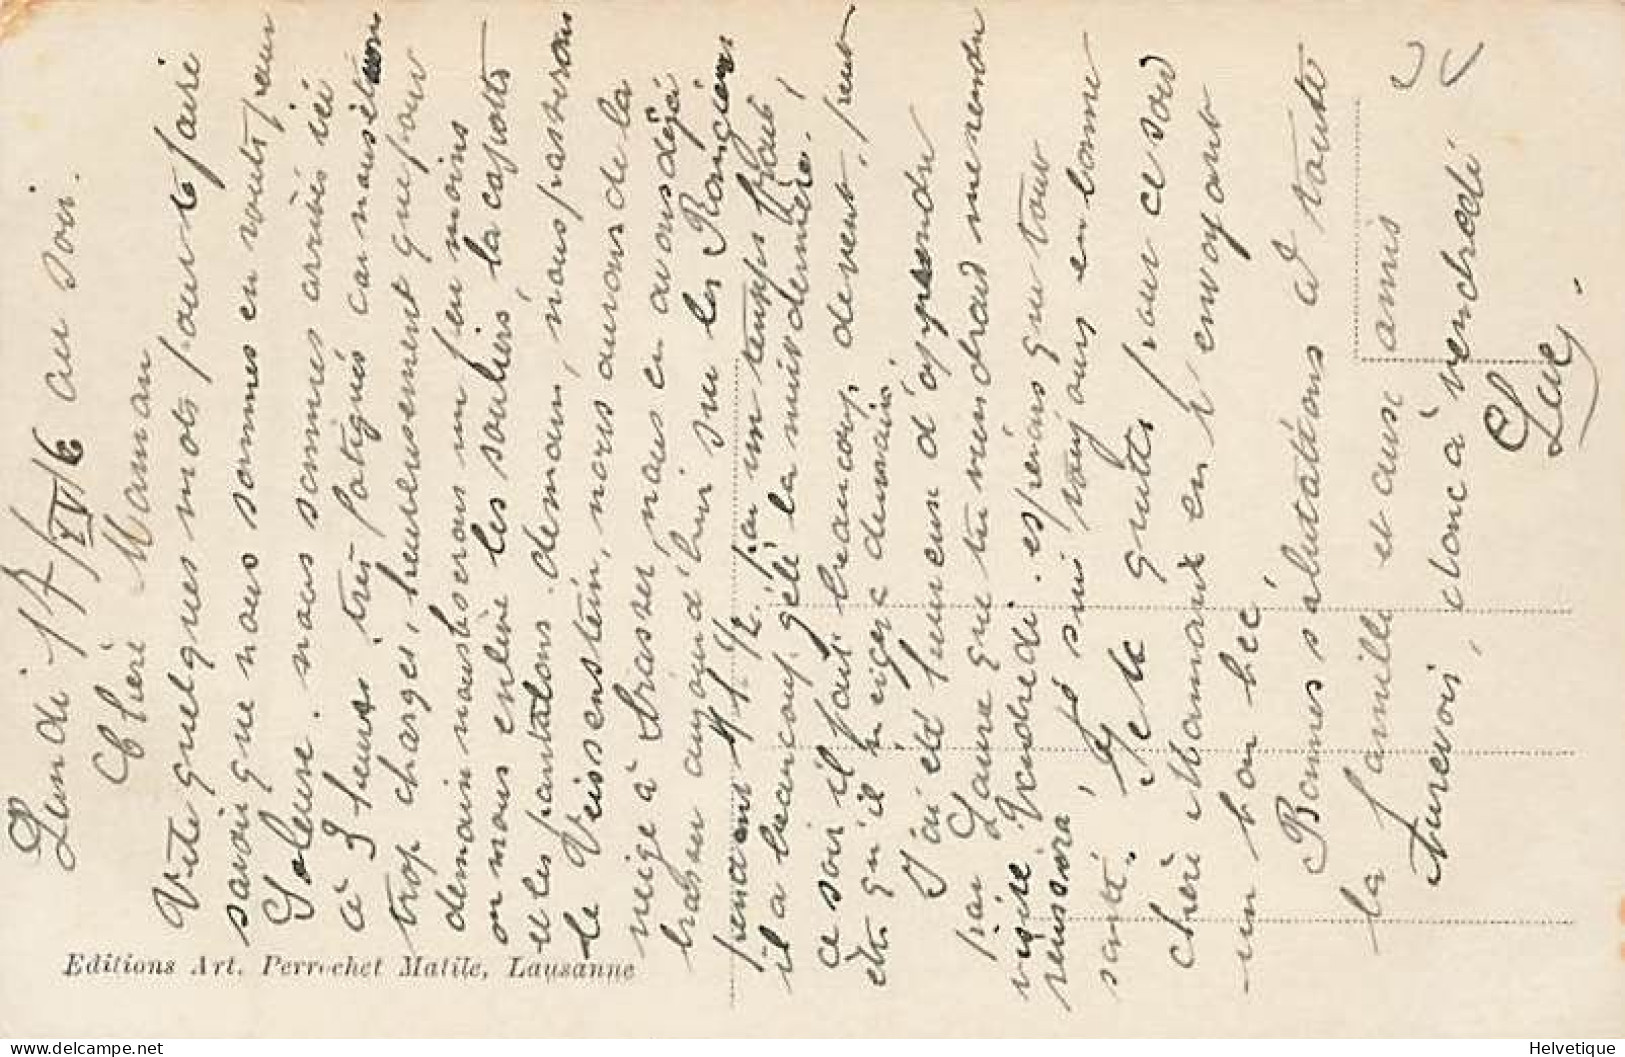 Lundi 17/IV/16 au soir.
Chère Maman
Vite quelques mots pour te faire
savoir que nous sommes en route pour
Soleure. nous sommes arrivés ici
à 3 heures très fatigués car nous étions
trop chargés, heureusement que pour
demain nous serons un peu moins
on nous enlève les souliers la capotte
et les pantalons. demain, nous passerons
le Weissenstein, nous aurons de la
neige à brasser, nous en avons déjà
brasser aujourd'hui sur les Rangiers
pendant 1 h 1/2. par un temps
il a beaucoup gelé la nuit dernière!
ce soir il fait beaucoup de vent, peut
être qu'il neigera demain!
J'ai été heureux d'apprendre
par Laure que tu viendrais me rendre
visite Vendredi. espérons que tout
réussira, je suis toujours en bonne
santé. Je te quitte pour ce soir
chère Maman en t'envoyant
un bon bec,
Bonnes salutations à toute
la famille et aux amis
Aurevoir, donc à vendredi
Luc.
Editions Art. Perrochet Matile, Lausanne
http://www.delcampe.net
Helvetique